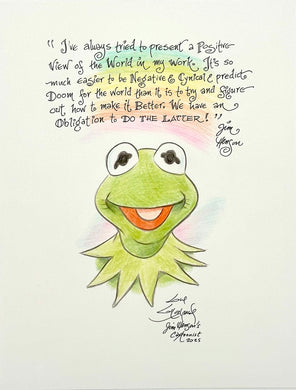 "I've always tried to present a Positive
View of the World in my Work. It's so
much easier to be Negative & Cynical & predict
Doom for the world than it is to try and Figure
out how to make it Better. We have an
Obligation to DO THE LATTER!"
Jim
Henson
Love
Jim Henson's
Cartoonist
2025